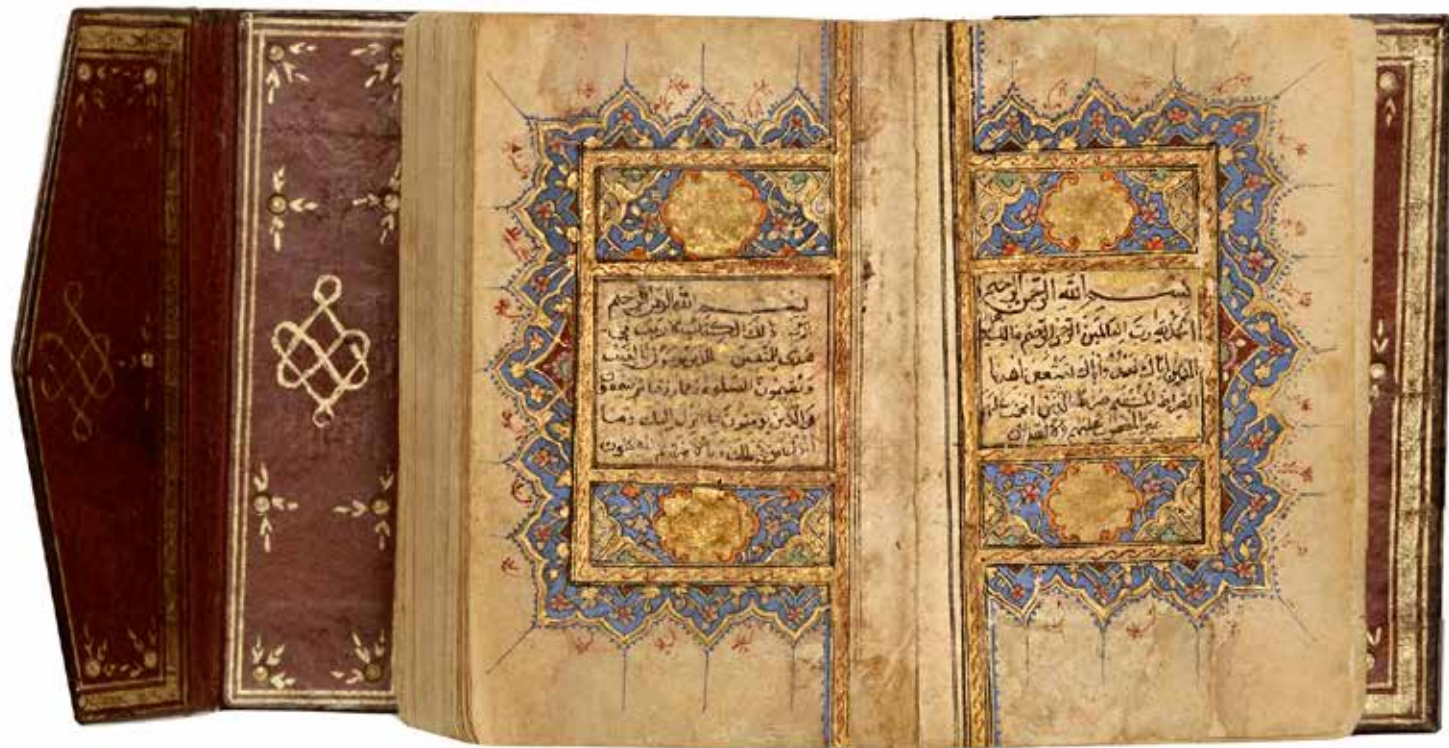 بسم الله الرحمن الرحيم
الحمد لله رب العالمين الرحمن الرحيم مالك يوم
الدين إياك نعبد وإياك نستعين اهدنا
الصراط المستقيم صراط الذين انعمت عليهم
غير المغضوب عليهم ولا الضالين
بسم الله الرحمن الرحيم
الم ذلك الكتاب لا ريب فيه
هدى للمتقين الذين يؤمنون بالغيب
ويقيمون الصلوة ومما رزقناهم ينفقون
والذين يؤمنون بما انزل اليك وما
انزل من قبلك وبالاخرة هم يوقنون